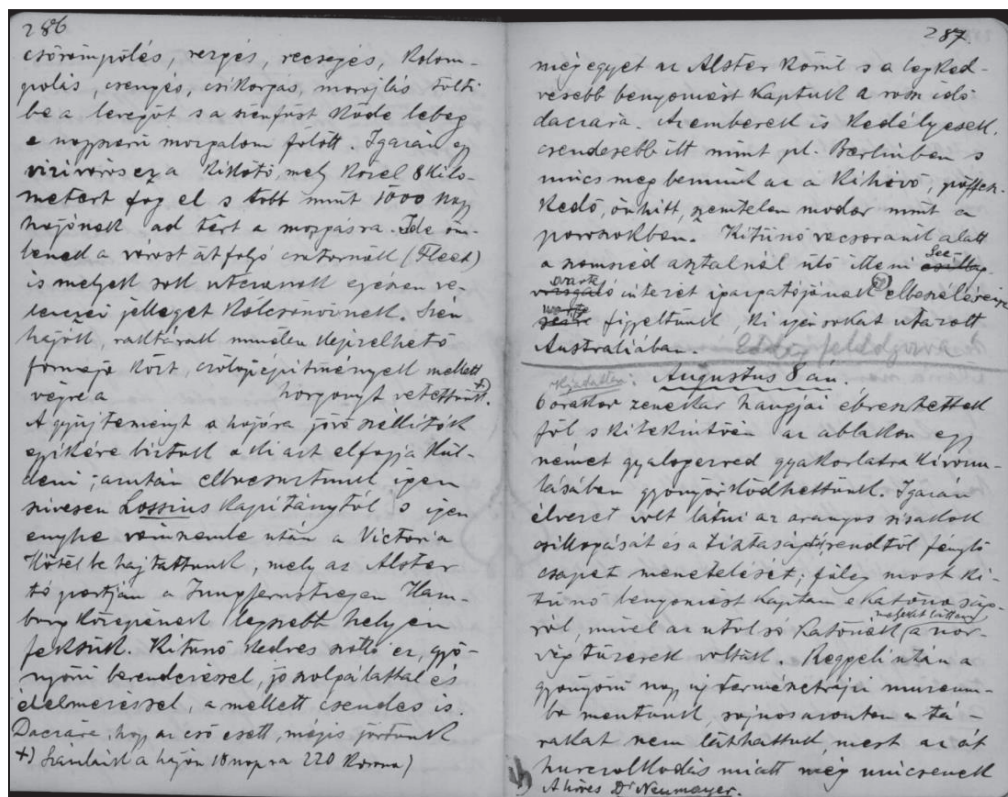 286
csörömpölés, rezgés, recsegés, kolom-
polás, csengés, csikorgás, morajlás tölti
be a levegőt s a kénfüst köde lebeg
e nagyszerű mozgalom fölött. Igazán egy
viziváros ez a kikötő, mely közel 8 kilo-
métert fog el s több mint 1000 nagy
hajónak ad tért a mozgásra. Ide öm-
lenek a várost átfolyó csatornák (Fleet)
is melyek sok utczának egészen ve-
lenczei jelleget kölcsönöznek. Szén
hajók, raktárak minden képzelhető
formája közt, czölöpépítmények mellett
végre a horgonyt vetettünk. +)
A gyűjteményt a hajóra jövő szállítók
egyikére bíztuk a ki azt elfogja kül-
deni; azután elbúcsúztunk igen
szívesen Lossius kapitánytól s igen
enyhe vámszemle után a Victoria
Hôtelbe hajtattunk, mely az Alster
tó partján a Jungfernstiegen Ham-
burg közepének legszebb helyén
fekszik. Kitünő kedves szálló ez, gyö-
nyörü berendezéssel, jó szolgálattal és
élelmezéssel, a mellett csendes is.
Daczára, hogy az eső esett, mégis jártunk
+) Számláink a hajón 18 napra 220 korona)
287
még egyet az Alster körül s a legked-
vesebb benyomást kaptuk a rossz idő
daczára. Az emberek is kedélyesek,
csendesebb itt mint pl. Berlinben s
nincs meg bennük az a kihívó, pöffesz-
kedő, önhitt, szemtelen modor mint a
poroszokban. Kitünő vacsoránk alatt
a szomszéd asztalnál ülő itteni See-
warte intézet igazgatójának elbeszélésére
figyeltünk, ki igen sokat utazott
Australiában.
Augusztus 8 án.
6 órakor zenekar hangjai ébresztettek
föl s kitekintvén az ablakon egy
német gyalogezred gyakorlatra kivonu-
lásában gyönyörködhettünk. Igazán
élvezet volt látni az aranyos sisakok
csillogását és a tisztaságtól rendtől fénylő
csapat menetelését; főleg most ki-
tünő benyomást kaptam e katonaság-
ról, mivel az utolsó katonák a nor-
vég tüzérek voltak. Reggeli után a
gyönyörü nagy új természetrajzi muzeum-
ba mentünk, sajnos azonban a tá-
rakat nem láthattuk, mert az át
hurczolkodás miatt még nincsenek
A híres Dr Neumayer.